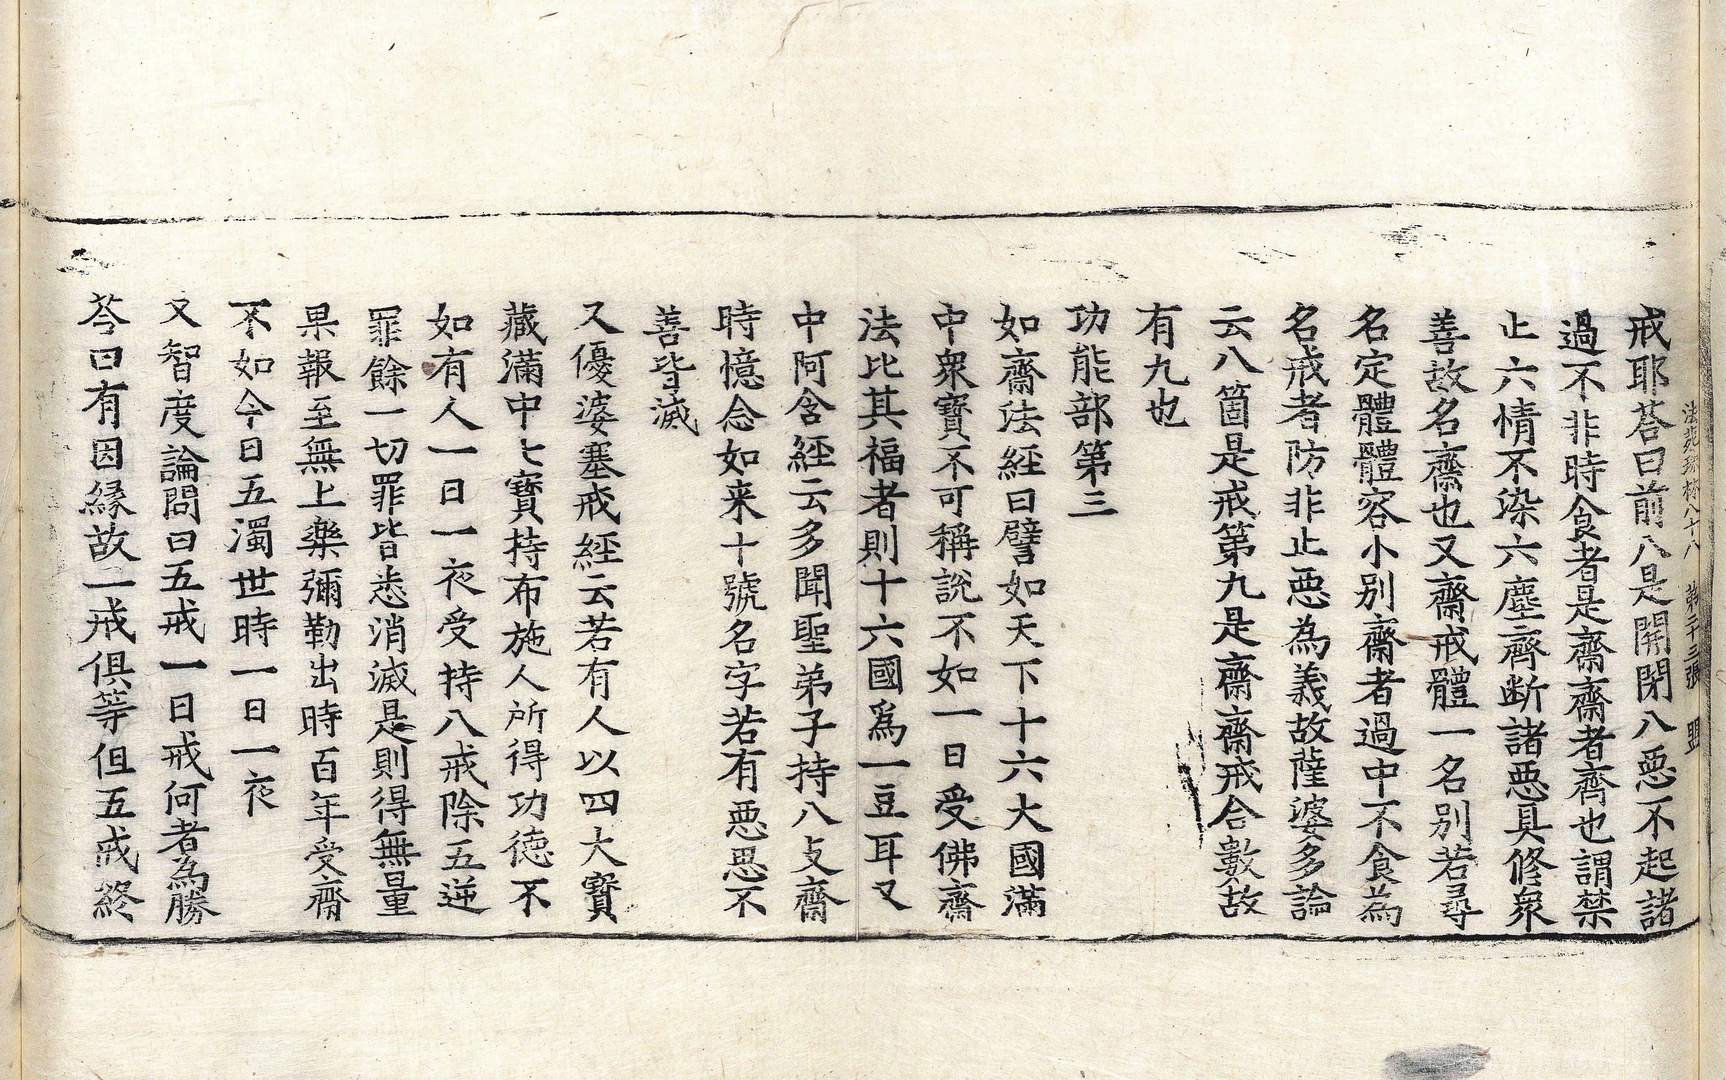 法苑珠林八十八 第二十三張 盟
戒耶荅曰前八是開閉八惡不起諸
過不非時食者是齋齋者齊也謂禁
止六情不染六塵齊断諸惡具修衆
善故名齋也又齋戒體一名別若尋
名定體體容小別齋者過中不食為
名戒者防非止惡為義故薩婆多論
云八箇是戒第九是齋齋戒合數故
有九也
功能部第三
如齋法經曰譬如天下十六大國滿
中衆寶不可稱說不如一日受佛齋
法比其福者則十六國爲一豆耳又
中阿含經云多聞聖弟子持八支齋
時憶念如来十號名字若有惡思不
善皆滅
又優婆塞戒經云若有人以四大寶
藏滿中七寶持布施人所得功德不
如有人一日一夜受持八戒除五逆
罪餘一切罪皆悉消滅是則得無量
果報至無上樂彌勒出時百年受齋
不如今日五濁世時一日一夜
又智度論問曰五戒一日戒何者為勝
荅曰有因緣故二戒俱等但五戒終